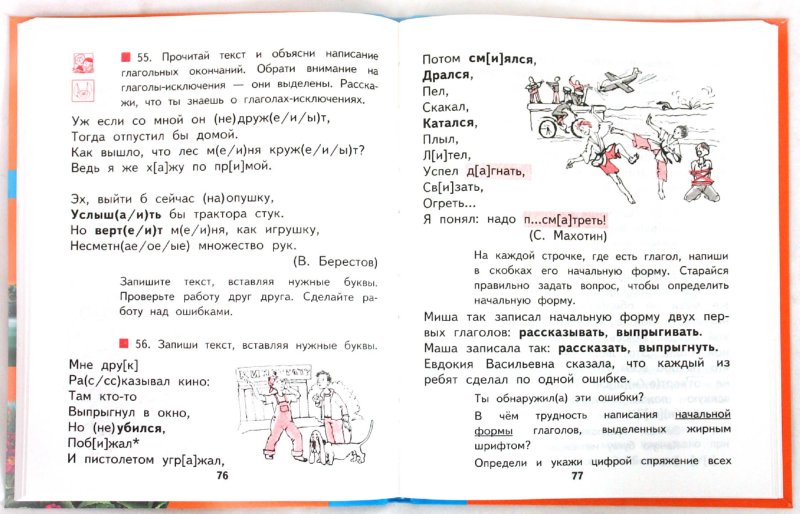 55. Прочитай текст и объясни написание
глагольных окончаний. Обрати внимание на
глаголы-исключения — они выделены. Расска-
жи, что ты знаешь о глаголах-исключениях.
Уж если со мной он (не)друж(е/и/ы)т,
Тогда отпустил бы домой.
Как вышло, что лес м(е/и)ня круж(е/и/ы)т?
Ведь я же х[а]жу по пр[и]мой.
Эх, выйти б сейчас (на)опушку,
Услыш(а/и)ть бы трактора стук.
Но верт(е/и)т м(е/и)ня, как игрушку,
Несметн(ае/ое/ые) множество рук.
(В. Берестов)
Запишите текст, вставляя нужные буквы.
Проверьте работу друг друга. Сделайте ра-
боту над ошибками.
56. Запиши текст, вставляя нужные буквы.
Мне дру[к]
Ра(с/сс)казывал кино:
Там кто-то
Выпрыгнул в окно,
Но (не)убился,
Поб[и]жал*
И пистолетом угр[а]жал,
76
Потом см[и]ялся,
Дрался,
Пел,
Скакал,
Катался,
Плыл,
Л[и]тел,
Успел д[а]гнать,
Св[и]зать,
Огреть...
Я понял: надо п...см[а]треть!
(С. Махотин)
На каждой строчке, где есть глагол, напиши
в скобках его начальную форму. Старайся
правильно задать вопрос, чтобы определить
начальную форму.
Миша так записал начальную форму двух пер-
вых глаголов: рассказывать, выпрыгивать.
Маша записала так: рассказать, выпрыгнуть.
Евдокия Васильевна сказала, что каждый из
ребят сделал по одной ошибке.
Ты обнаружил(а) эти ошибки?
В чём трудность написания начальной
формы глаголов, выделенных жирным
шрифтом?
Определи и укажи цифрой спряжение всех
77